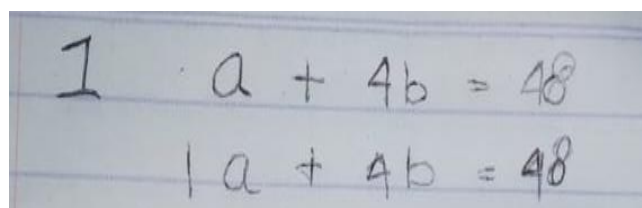 1 a + 4b = 48
1a + 4b = 48